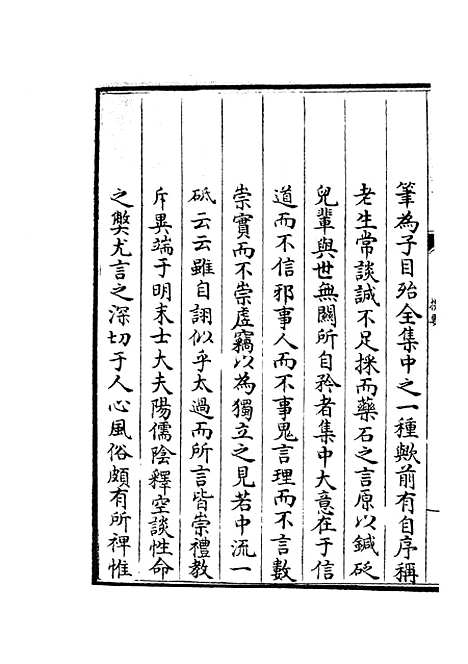 筆為子目殆全集中之一種歟前有自序稱
老生常談誠不足採而藥石之言原以鍼砭
兒輩與世無關所自矜者集中大意在于信
道而不信邪事人而不事鬼言理而不言數
崇實而不崇虛竊以為獨立之見若中流一
砥云云雖自詡似乎太過而所言皆崇禮教
斥異端于明末士大夫陽儒陰釋空談性命
之弊尤言之深切于人心風俗頗有所裨惟